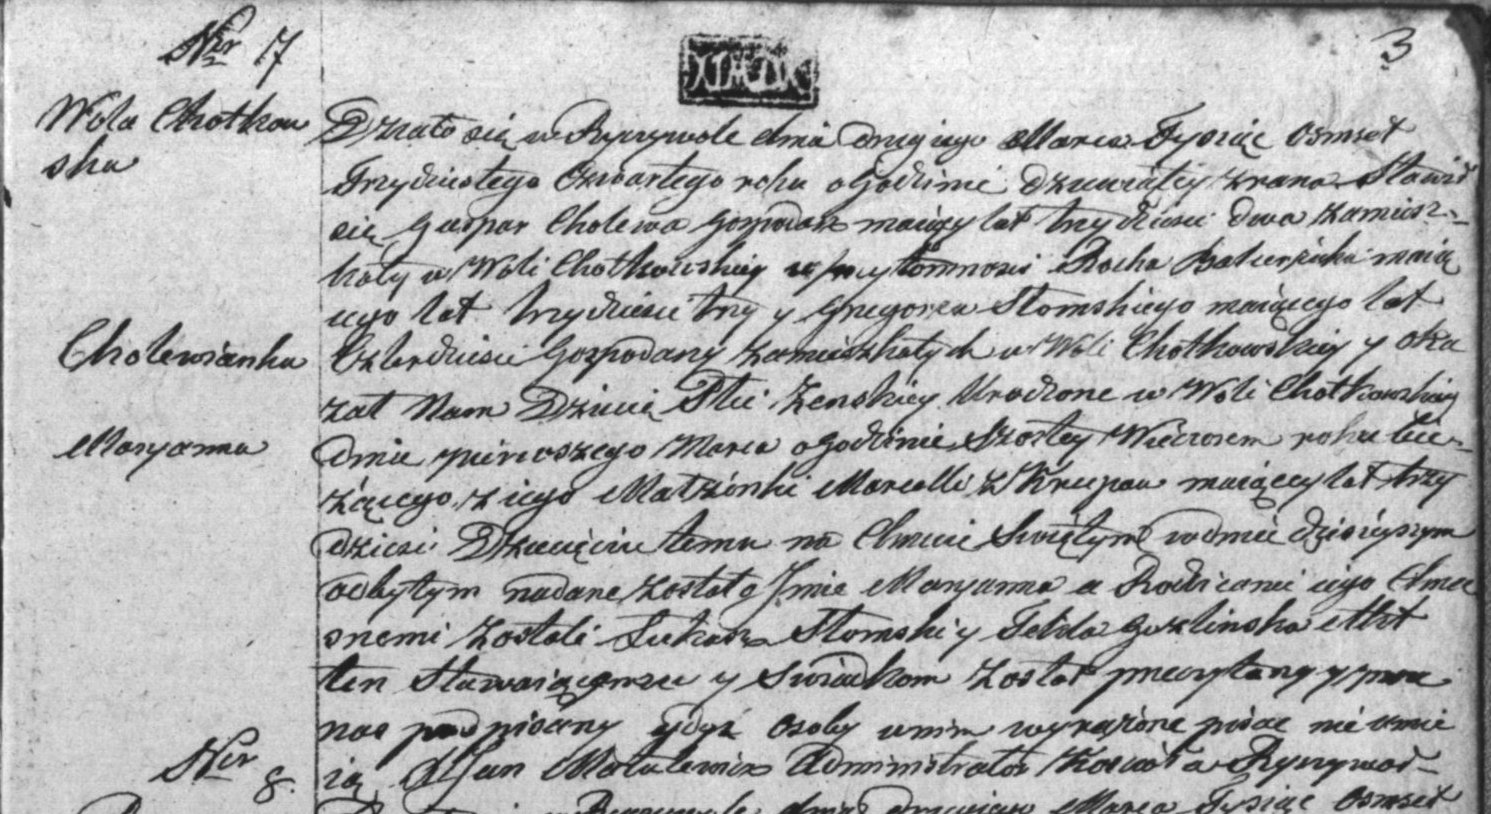 Nr 7
3
Wola Chotkow
ska
Działo się w Ryczywole dnia drugiego Marca Tysiąc Osmset
Trzydziestego Czwartego roku o Godzinie dziewiątey zrana Stawił
się Gaspar Cholewa Gospodarz maiący lat trzydzieści dwa zamiesz-
kały w Woli Chotkowskiey w przytomności Rocha maią
cego lat trzydzieści trzy y Grzegorza Słomskiego maiącego lat
Cholewianka
Czterdzieści Gospodarzy zamieszkałych w Woli Chotkowskiey y oka
zał Nam Dziecię Płci Żenskiey Urodzone w Woli Chotkowskiey
Maryanna
dnia pierwszego Marca o godzinie Szostey Wieczorem roku bie-
żącego z iego Małżonki Marcelli z Krupow maiącey lat trzy
dzieści Dziecięciu temu na Chrzcie Swiętym w dniu dzisieyszym
odbytym nadane zostało Jmie Maryanna a Rodzicami iego Chrze
snemi zostali Łukasz Słomski y Tekla Guzlinska Akt
ten Stawaiącemu y Swiadkom został przeczytany y przez
nas podpisany gdyż Osoby w nim wyrażone pisac nie umie
ią X Jan Administrator Koscioła Ryczywol-
Nr 8.
w Ryczywole dnia drugiego Marca Tysiąc Osmset